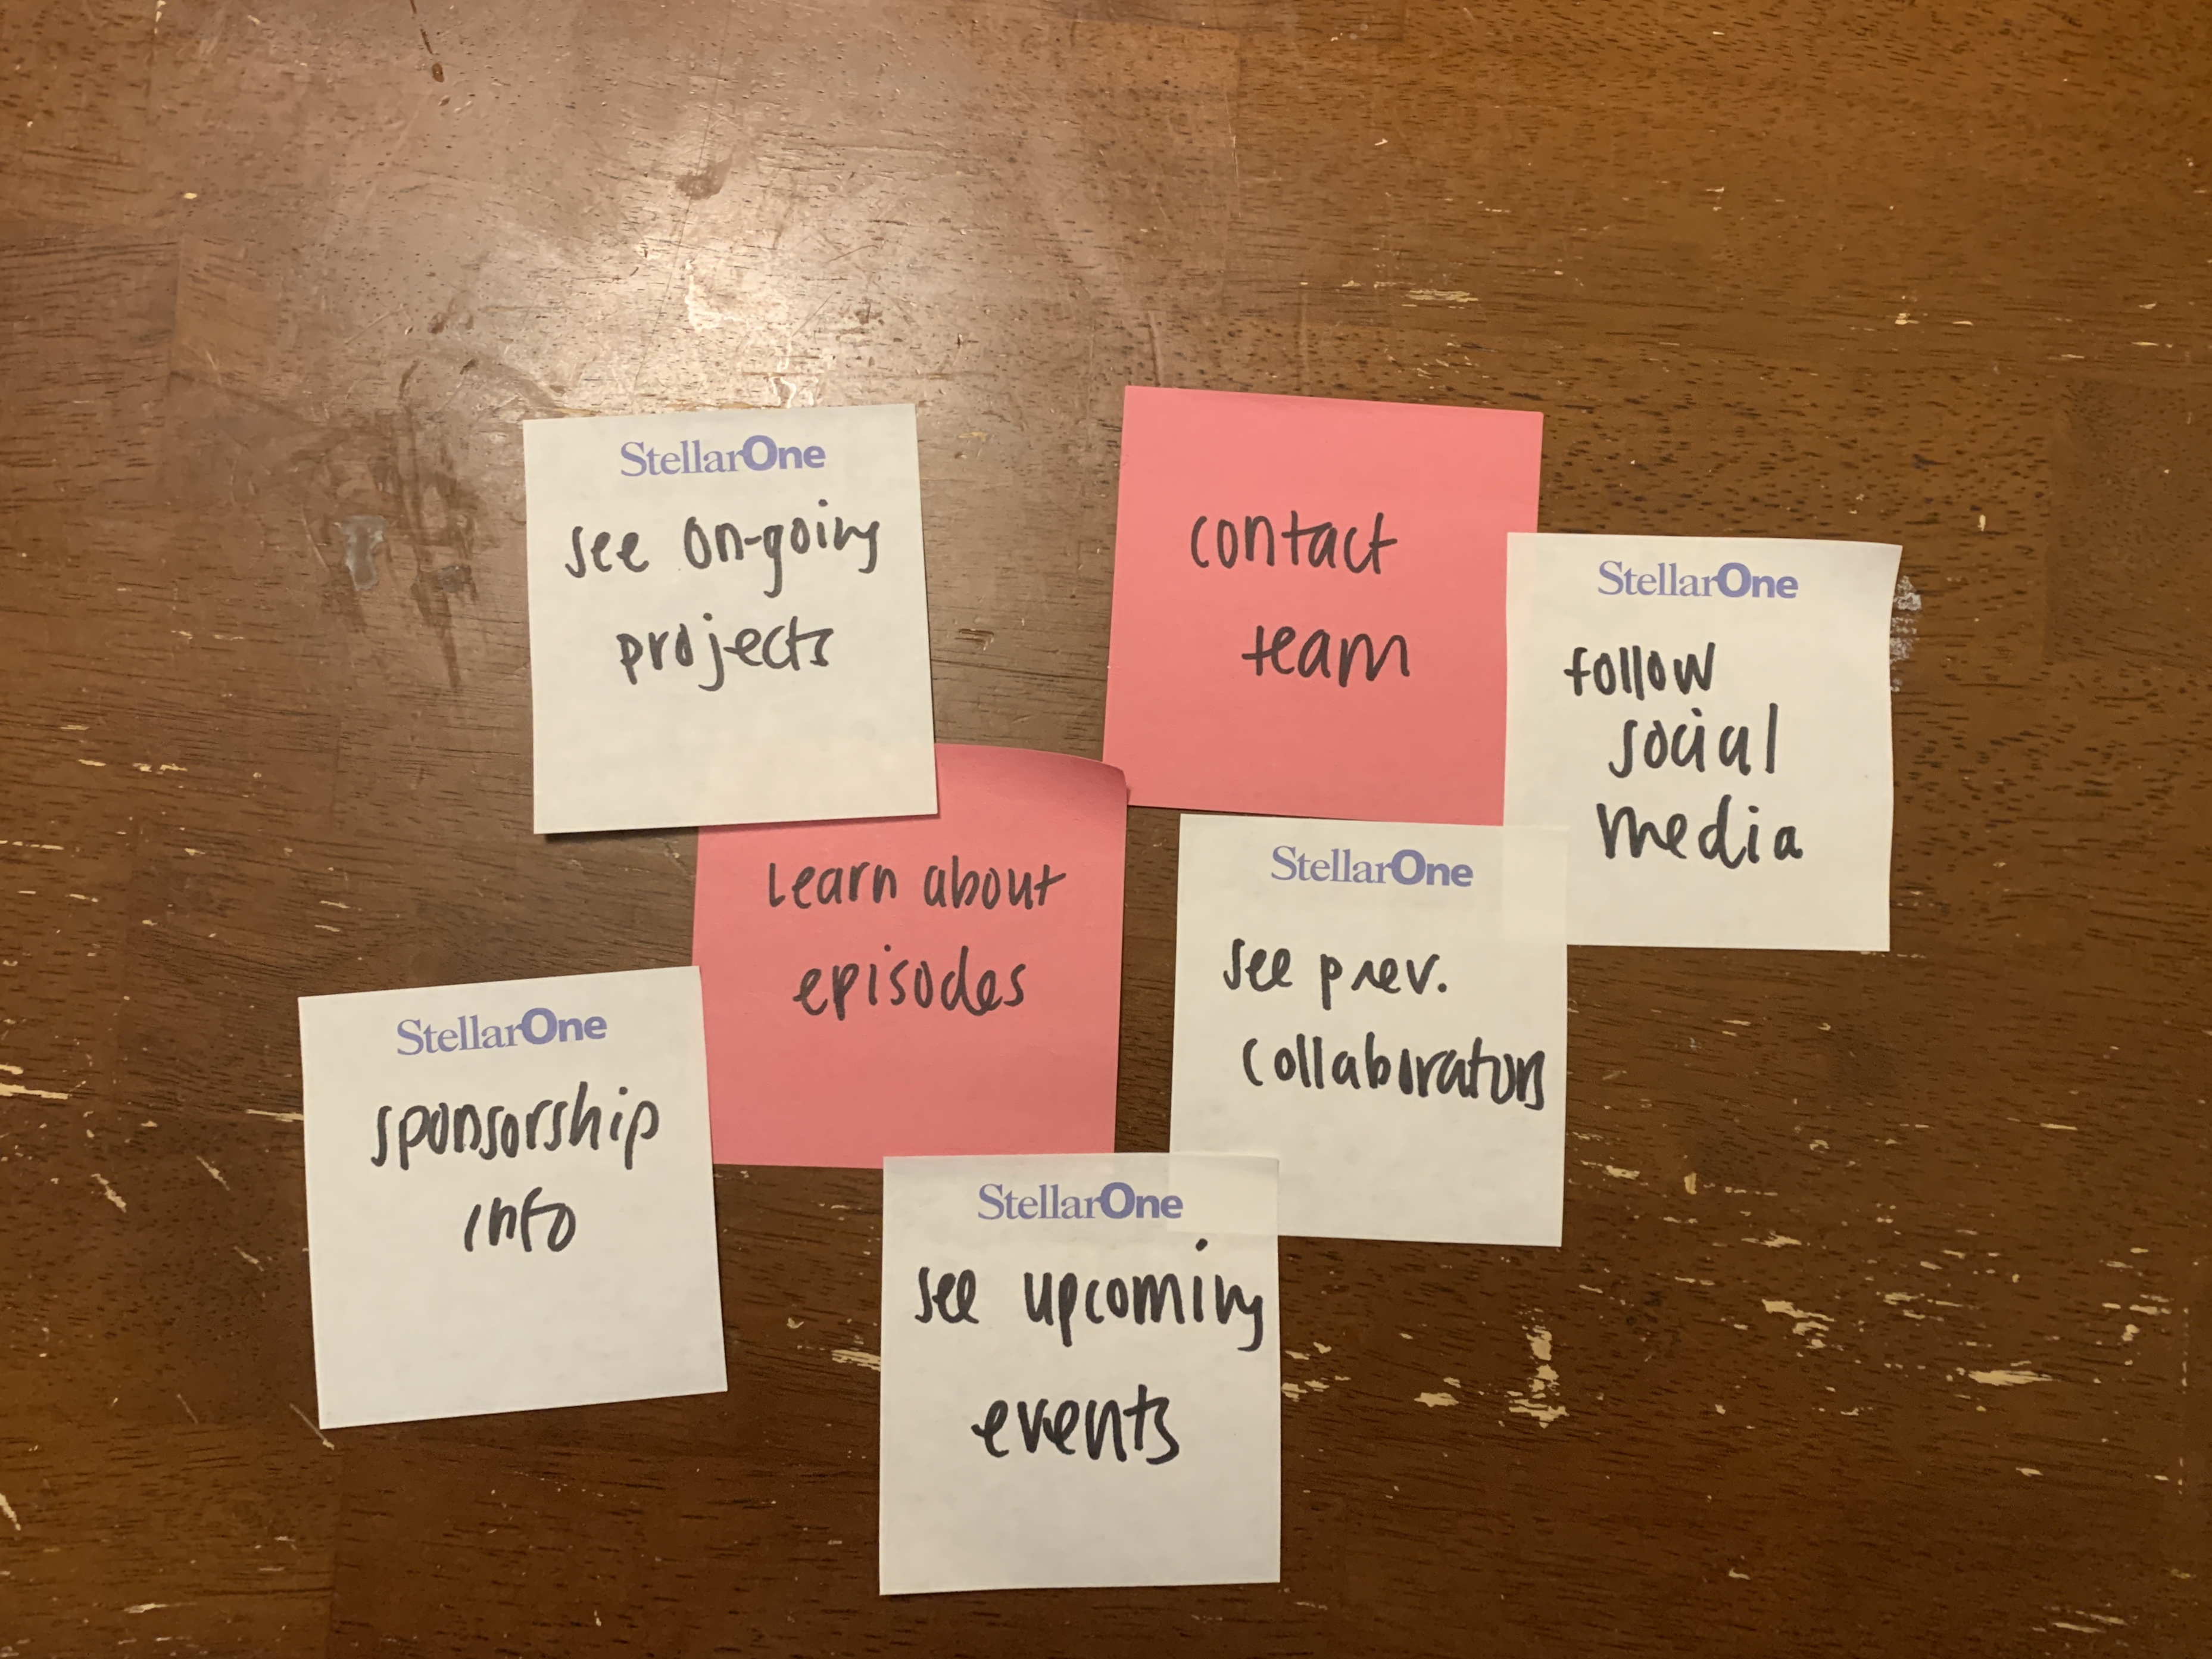 StellarOne
see on-going
projects
contact
team
StellarOne
follow
social
media
Learn about
episodes
StellarOne
see prev.
collaborators
StellarOne
sponsorship
info
StellarOne
see upcoming
events